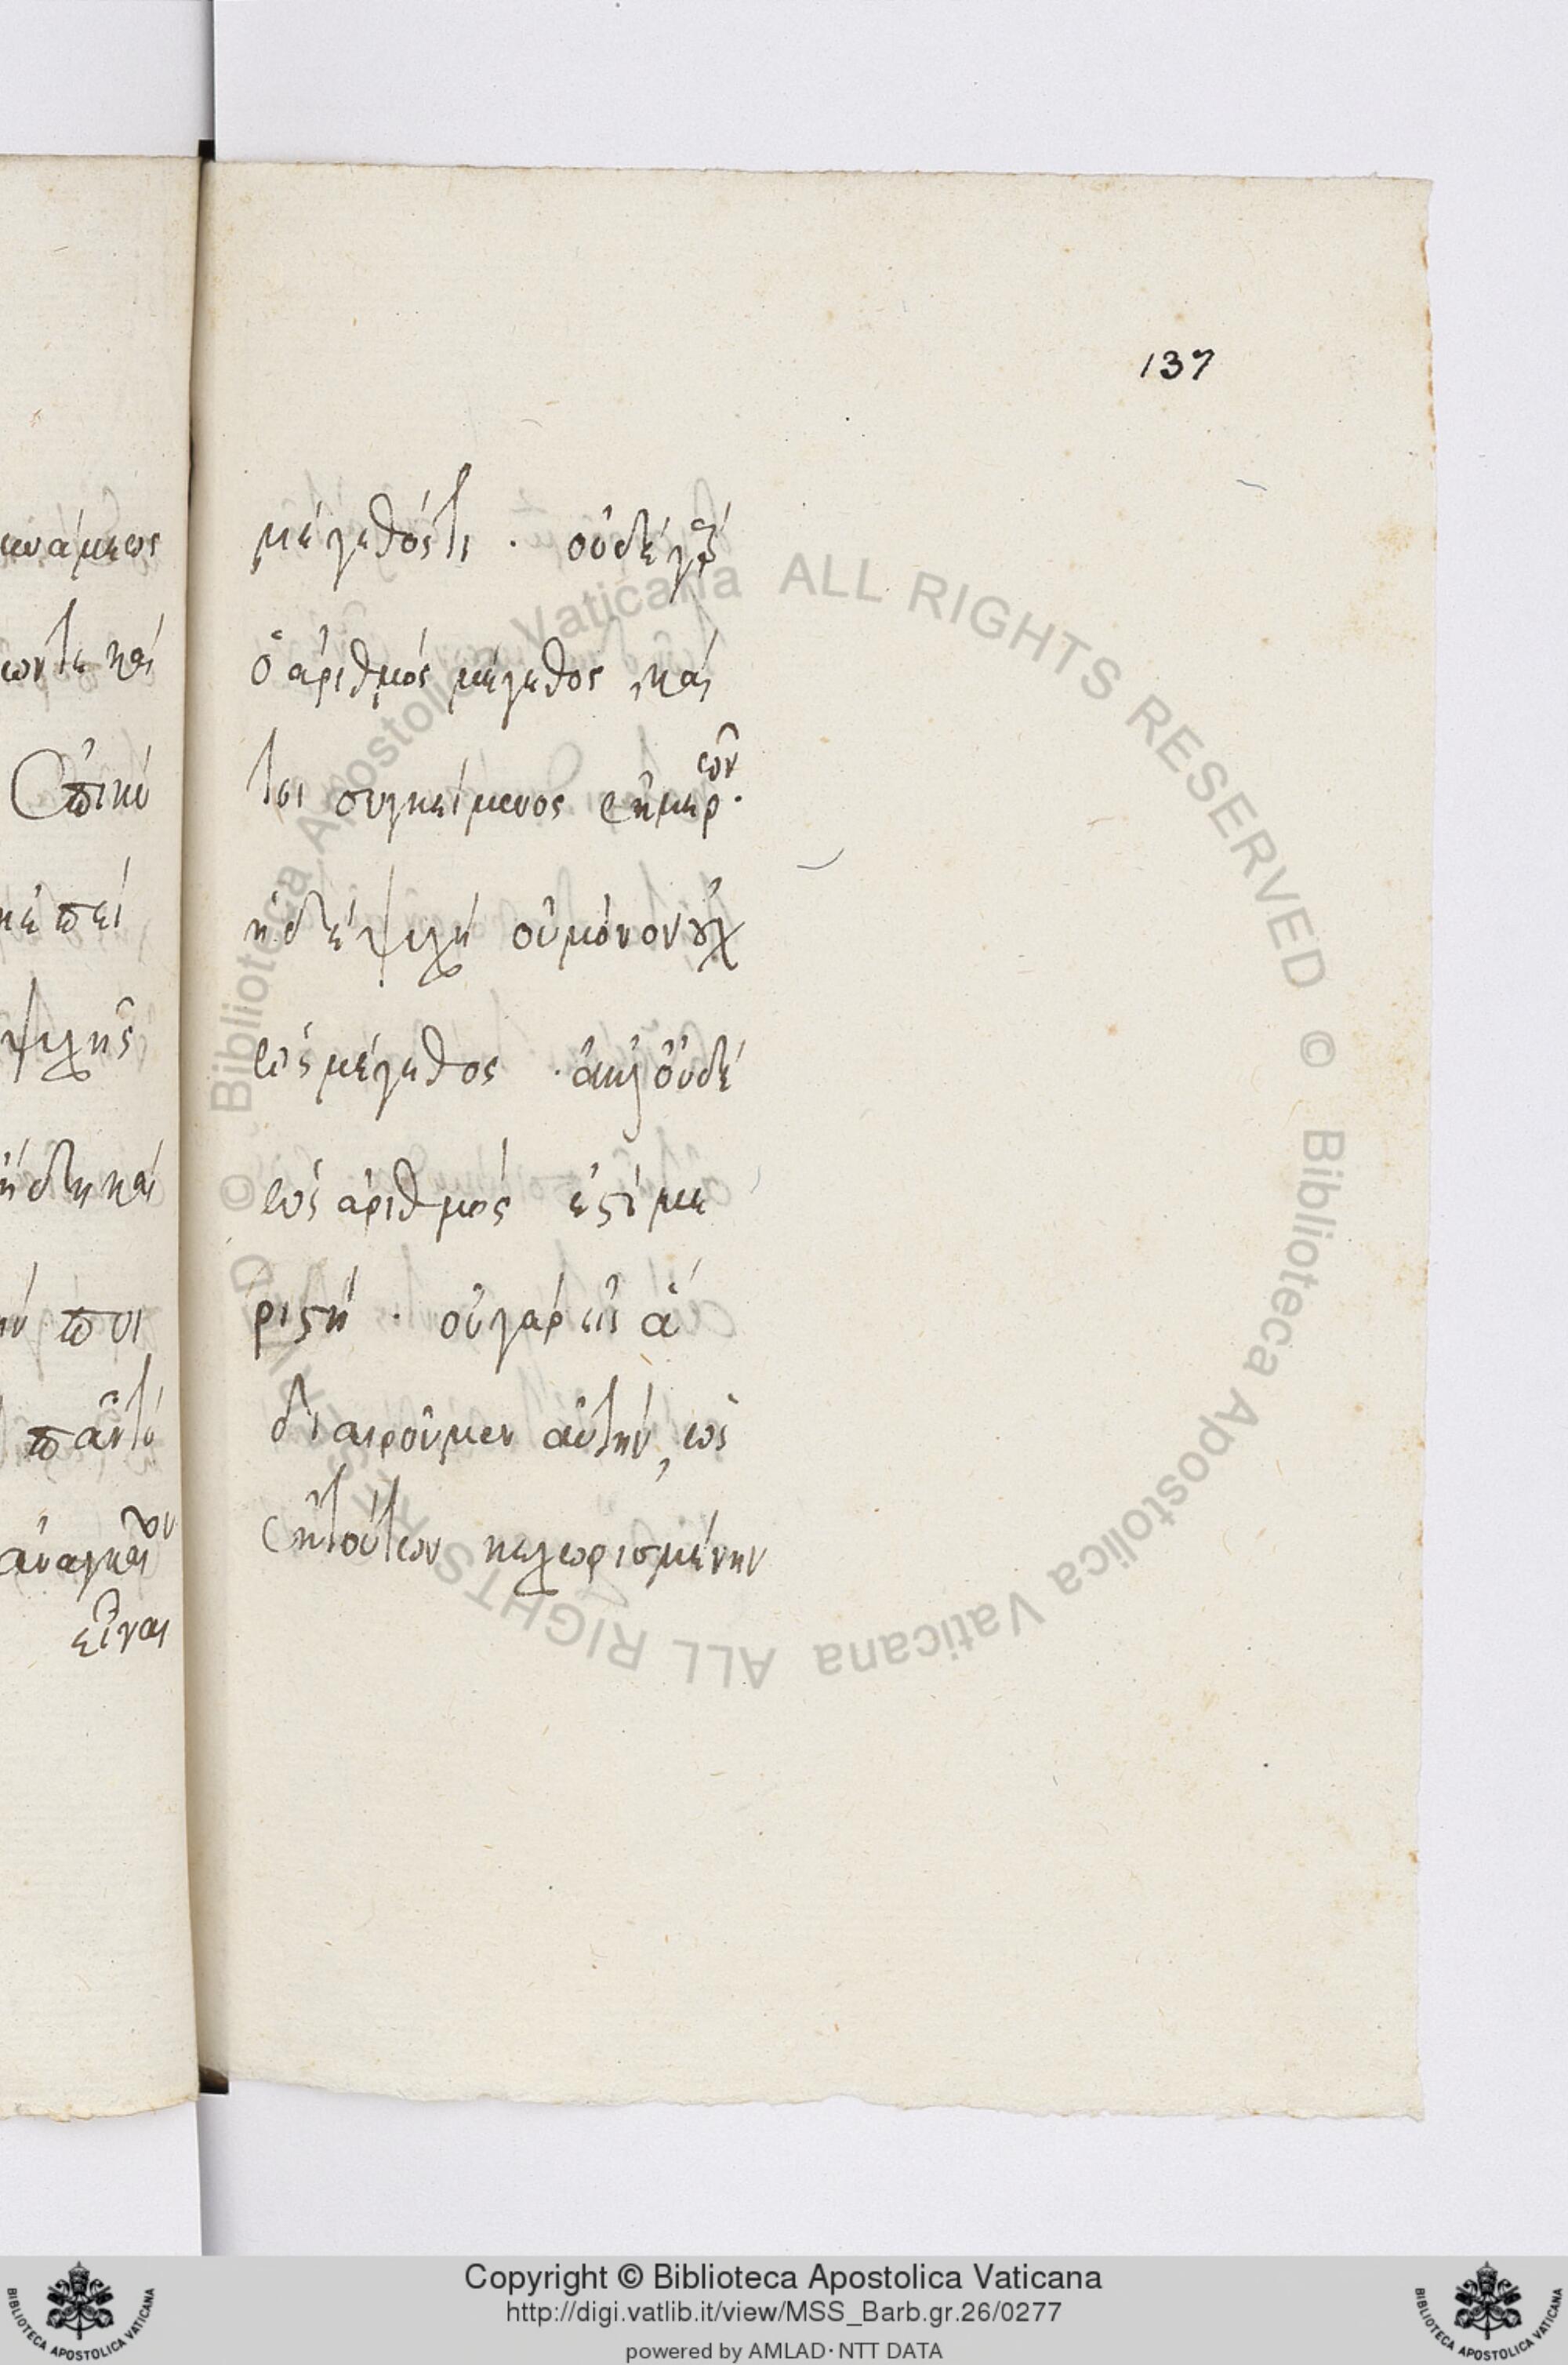 137
μέγεθός τι · οὐδὲ γὰρ
ὁ ἀριθμός μέγεθος καί
τοι συγκείμενος ἐκ μερῶν·
ἡ δὲ ψυχή οὐ μόνον οὐχ
ὡς μέγεθος · ἀλλ' οὐδέ
ὡς ἀριθμός ἐστί με
ριστή · οὐ γὰρ εἰς ἃ
διαιροῦμεν αὐτήν, ὡς
ἐκ τούτων κεχωρισμένην
νάμεως
ων τε καί
ἐπεί
ψυχῆς
ἤδη καί
ποι
ἀναγκαῖον
εἶναι
© Biblioteca Apostolica Vaticana ALL RIGHTS RESERVED © Biblioteca Apostolica Vaticana ALL RIGHTS RESERVED
Copyright © Biblioteca Apostolica Vaticana
http://digi.vatlib.it/view/MSS_Barb.gr.26/0277
powered by AMLAD·NTT DATA
BIBLIOTECA APOSTOLICA VATICANA
BIBLIOTECA APOSTOLICA VATICANA